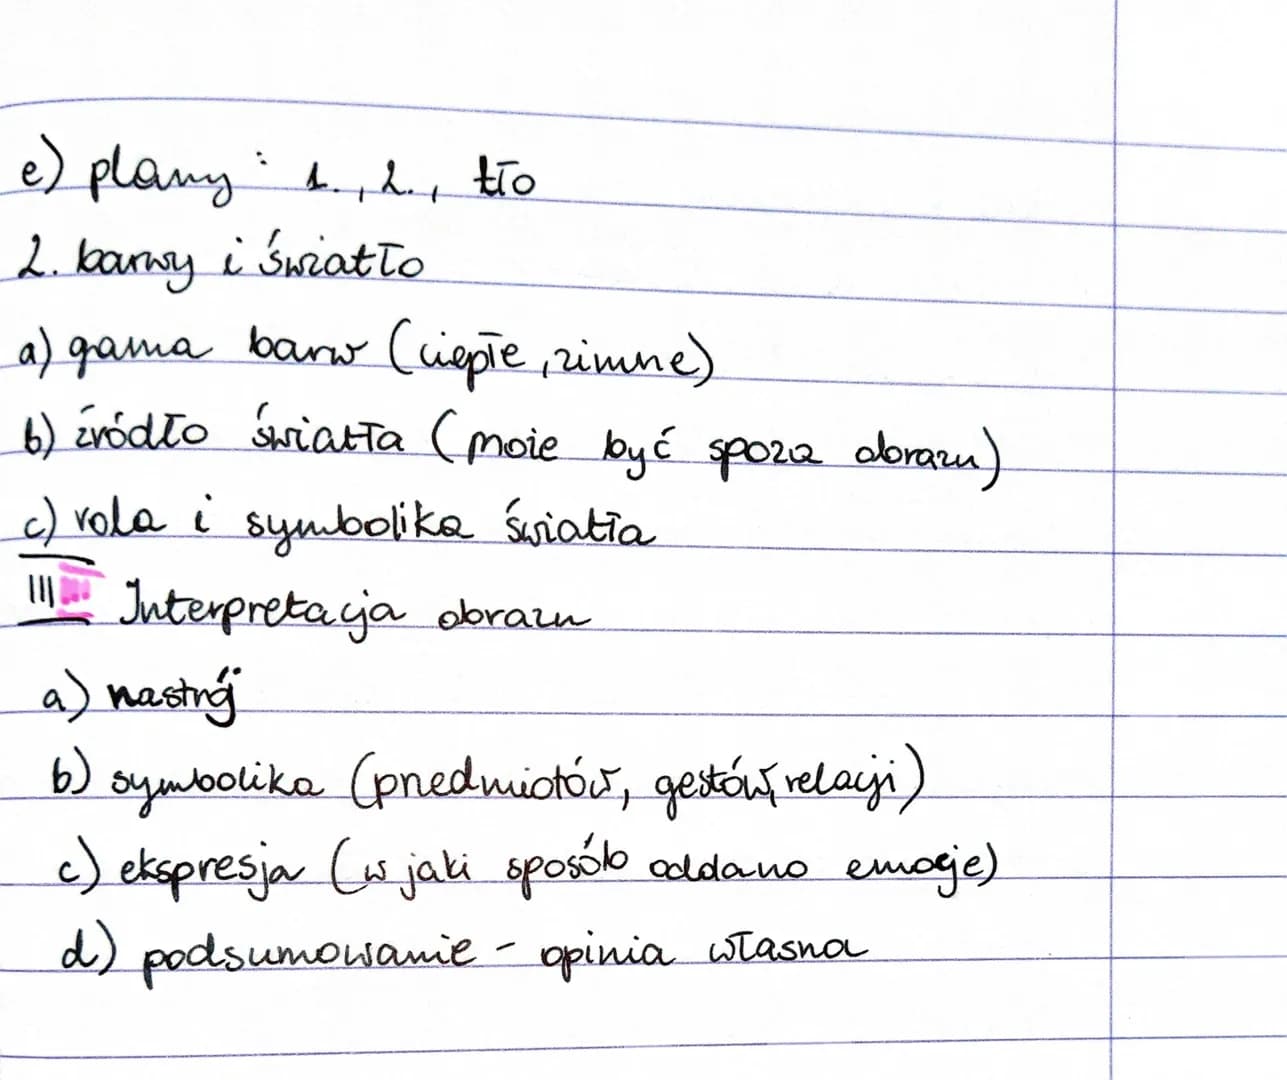 e) plany : 1., 2., tło
2. barwy i światło
a) gama barw (ciepłe, zimne)
b) źródło światła (może być spoza obrazu)
c) rola i symbolika światła
III Interpretacja obrazu
a) nastrój
b) symbolika (przedmiotów, gestów, relacji)
c) ekspresja (w jaki sposób oddano emocje)
d) podsumowanie - opinia własna